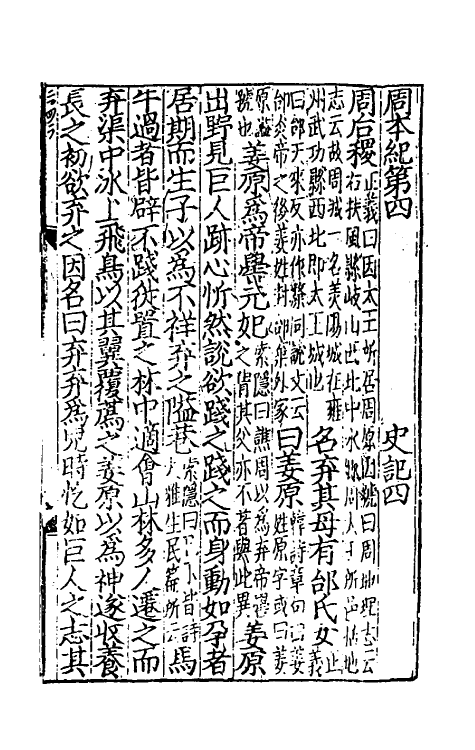 周本紀第四　史記四
周后稷正義曰因太王所居周原因號曰周地理志云右扶風縣岐山西北中水鄉周太王所邑括地
志云故周城一名美陽城在雍州武功縣西北即太王城也名弃其母有邰氏女正義
曰邰天來反亦作斄同說文云邰炎帝之後姜姓封邰弃外家曰姜原韓詩章句曰姜姓原字或曰姜
原謚號也姜原爲帝嚳元妃索隱曰譙周以爲弃帝嚳之胄其父亦不著與此異姜原
出野見巨人跡心忻然說欲踐之踐之而身動如孕者
居期而生子以爲不祥弃之隘巷索隱曰已下皆詩大雅生民篇所云馬
牛過者皆辟不踐徙置之林中適會山林多人遷之而
弃渠中冰上飛鳥以其翼覆薦之姜原以爲神遂收養
長之初欲弃之因名曰弃弃爲兒時忔如巨人之志其